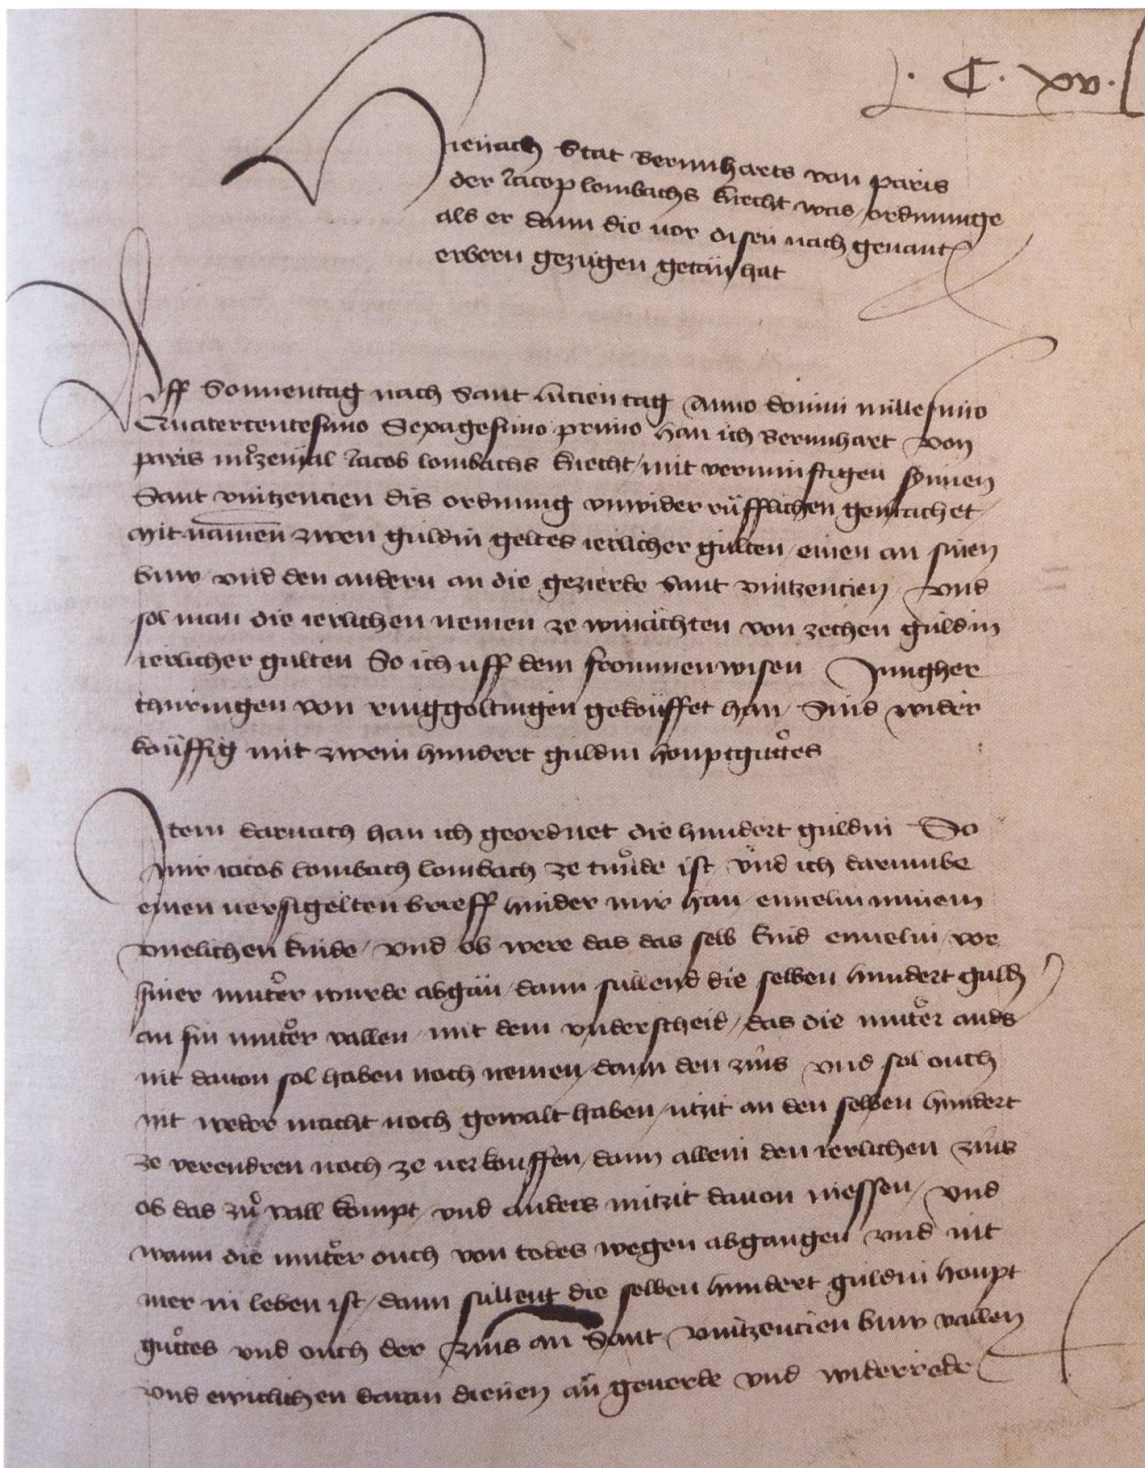 Hienach Stat Bernnharts von paris
der Jacop lombachs knecht was, ordnunge
als er dann die vor disen nach genanten
erbern gezügen getän hat
Uff Sonnentag nach Sant lucien tag Anno domini millesimo
Quatercentesimo Sexagesimo primo han ich Bernnhart von
paris Jacob lombachs knecht, mit vernünftigen synnen
Sant vintzencien dis ordnung unwiderrüfflichen gemachet
Mit namen zwen guldin geltes ierlicher gulten, einen an sinen
buw vnd den andern an die gezierde Sant vintzencien, Vnd
sol man die ierlichen nemen ze winächten von zechen guldin
ierlicher gulten So ich uff dem frommen wisen Jungher
thuringen von ringgoltingen geköuffet han, Sind wider
köuffig mit zwein hundert guldin houptguotes
Item darnach han ich geordnet die hundert guldin So
mir iacob lombach lombach ze tuonde ist, vnd ich darumbe
einen versigelten brieff hinder mir han, ennelin minem
vnelichen kinde, vnd ob were das das selb kind ennelin, vor
siner muoter wurde abgän, dann sullend die selben hundert guldin
an sin muoter vallen, mit dem vnderscheid, das die muoter anders
nit dauon sol haben noch nemen, dann den zins vnd sol ouch
nit weder macht noch gewalt haben, utzit an den selben hundert
ze verendren noch ze verkouffen, dann allein den ierlichen zins
ob das zuo vall kompt, vnd anders nützit dauon niessen, Vnd
wann die muoter ouch von todes wegen abgangen vnd nit
mer in leben ist, dann sullent die selben hundert guldin houpt
guotes vnd ouch der zins an Sant vintzencien buw vallen
vnd ewiclichen daran dienen än geuerde vnd widerrede